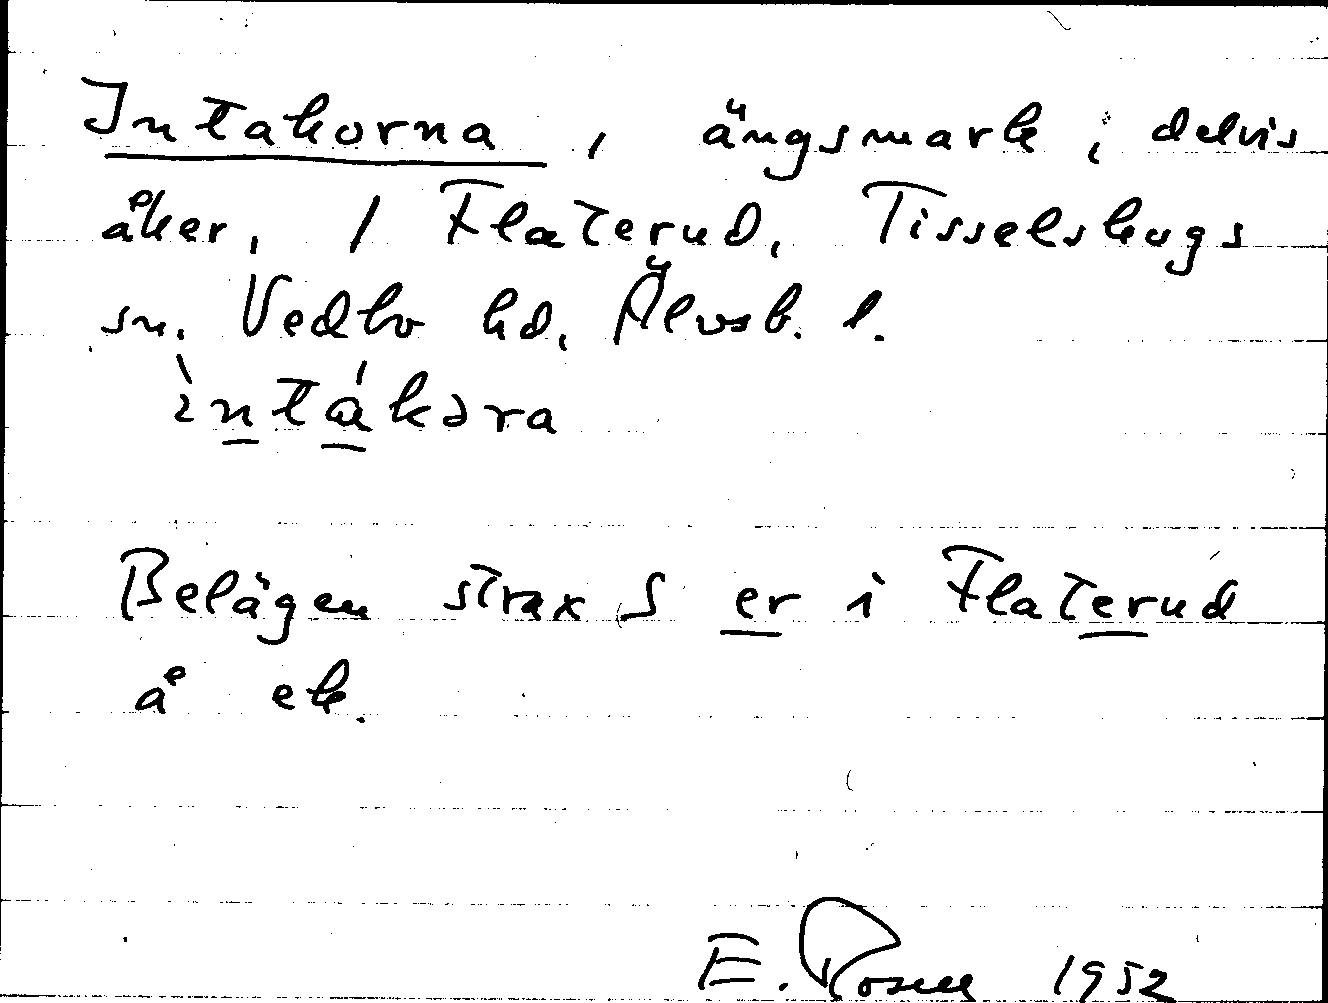 Intakorna, ängsmark, delvis
åker, 1 Flaterud, Tisselskogs
sn. Vedbo hd, Älvsb. l.
ìntákəra
Belägen strax S er i Flaterud
å ek.
E. Rosell 1952